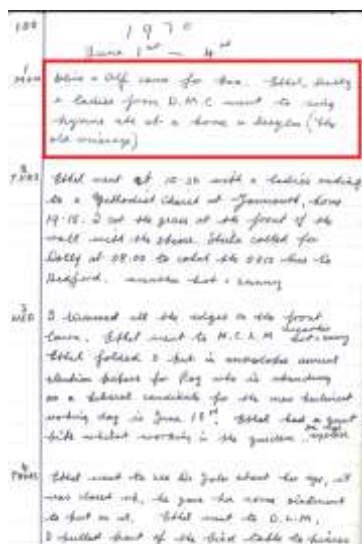 1970
June 1st - 4th
1
MON
Olive & Alf came for tea. Ethel, Dolly
& ladies from D.M.C went to sing
hymns etc at a home a (the
old vicarage)
2
TUES
Ethel went at 10-30 with a ladies outing
to a Methodist Church at Yarmouth, home
19-15. I cut the grass at the front of the
wall with the shears. Sheila called for
Dolly at 08.00 to catch the bus to
Bedford. weather hot & sunny
3
WED
I trimmed all the edges on the front
lawn. Ethel went to weather
hot & sunny
Ethel folded & put in envelopes
election papers for Ray who is standing
as a Liberal candidate for the
day is June 18th. Ethel had a gnat
bite whilst working in the garden
4
THURS
Ethel went to see Dr about her eye, it
was closed up, he gave her some ointment
to put on it. Ethel went to
I pulled part of the bird table to pieces